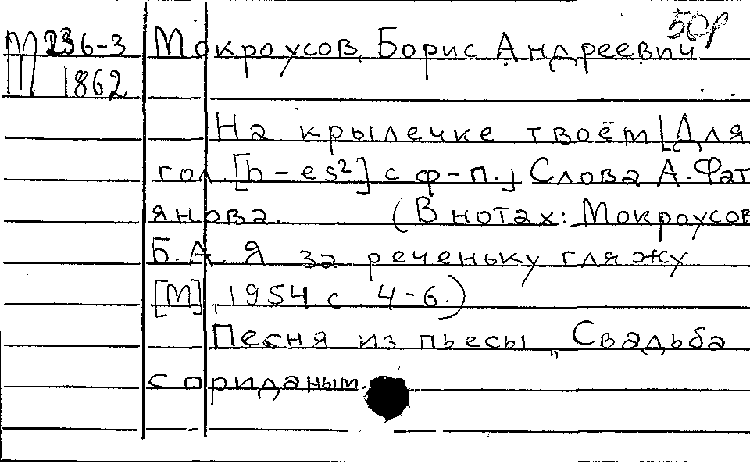 50р
М 236-3 Мокроусов, Борис Андреевич
1862
На крылечке твоём [Для
гол. [h-es²] с ф-п.] Слова А. Фат
янова. (В нотах: Мокроусов
Б.А. Я за реченьку гляжу
[М], 1954 с. 4-6.)
Песня из пьесы „Свадьба
с приданым.